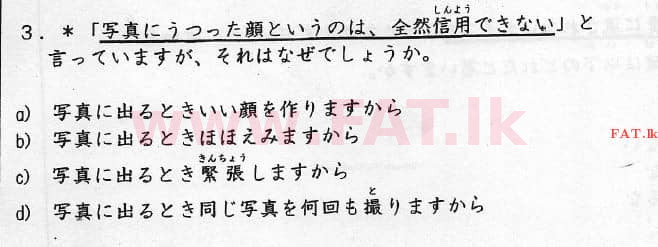 3. *「写真にうつった顔というのは、全然信用できない」と
しんよう
言っていますが、それはなぜでしょうか。
a) 写真に出るときいい顔を作りますから
b) 写真に出るときほほえみますから
www.FAT.lk
FAT.lk
きんちょう
c) 写真に出るとき緊張しますから
と
d) 写真に出るとき同じ写真を何回も撮りますから